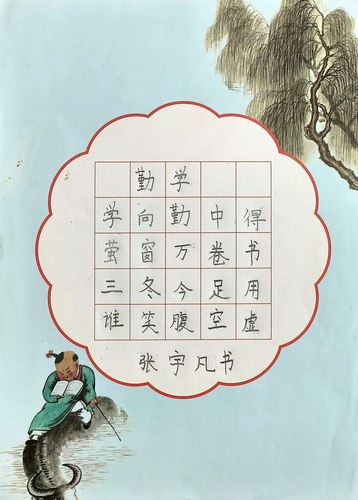 勤学
学向勤中得
萤窗万卷书
三冬今足用
谁笑腹空虚
张宇凡书